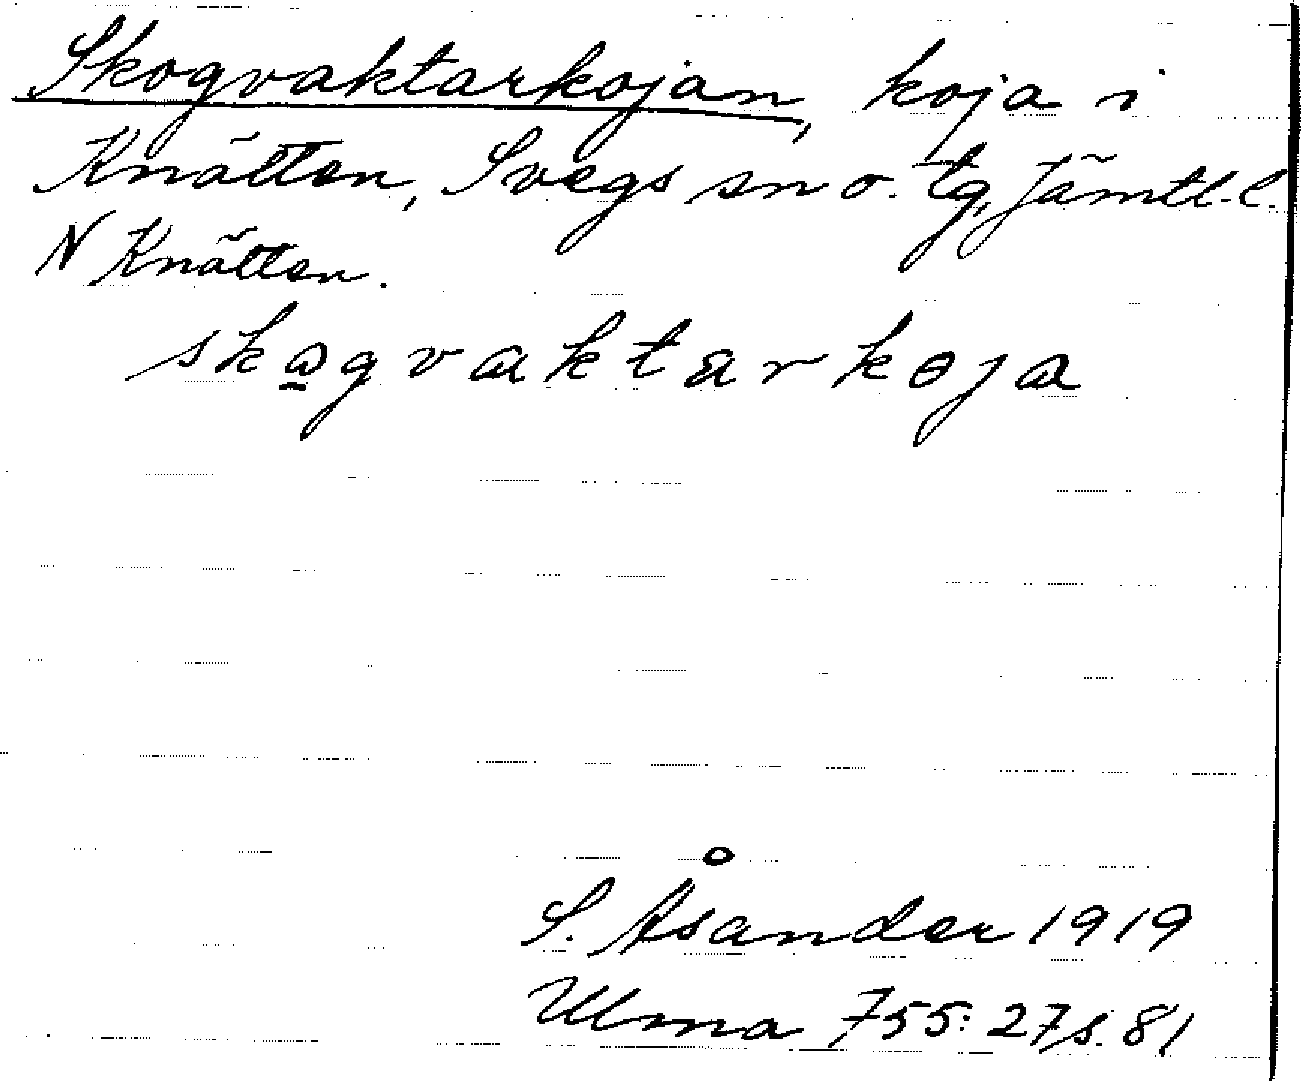 Skogvaktarkojan, koja i
Knätten, Svegs sn o. tg, Jämtl. l.
N Knätten.
skɷgvaktarkɵja
S. Åsander 1919
Ulma 755: 27 s. 81